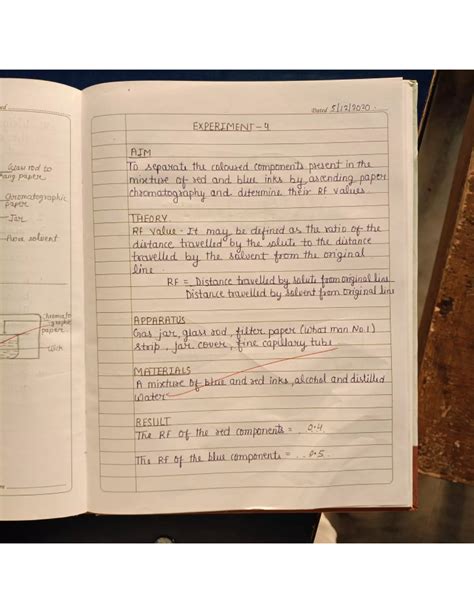 Glass rod to
hang paper
Chromatographic
paper
Jar
solvent
Chromato
graphic
paper
Wick
Dated 5/12/2020
EXPERIMENT-4
AIM
To separate the coloured components present in the
mixture of red and blue inks by ascending paper
chromatography and determine their RF values.
THEORY
RF value - It may be defined as the ratio of the
distance travelled by the solute to the distance
travelled by the solvent from the original
line.
RF = Distance travelled by solute from original line
Distance travelled by solvent from original line
APPARATUS
Gas jar, glass rod, filter paper (What man No.1)
strip, jar cover, fine capillary tube
MATERIALS
A mixture of blue and red inks, alcohol and distilled
water
RESULT
The RF of the red components = 0.4
The RF of the blue components = 0.5